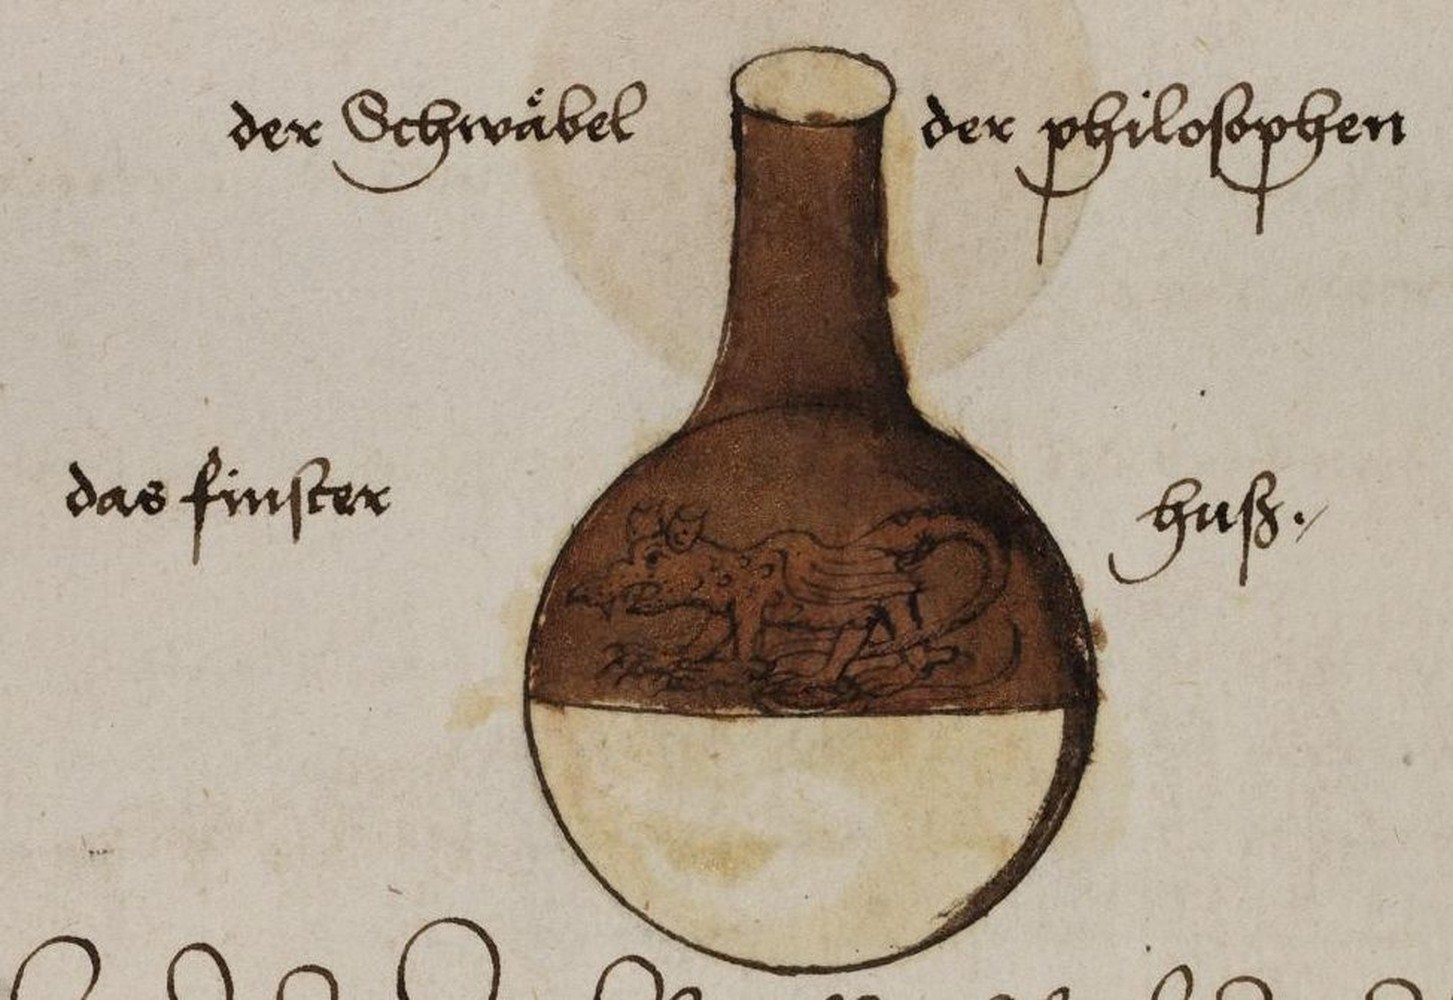 der Schwäbel der philosophen
das finster huß.